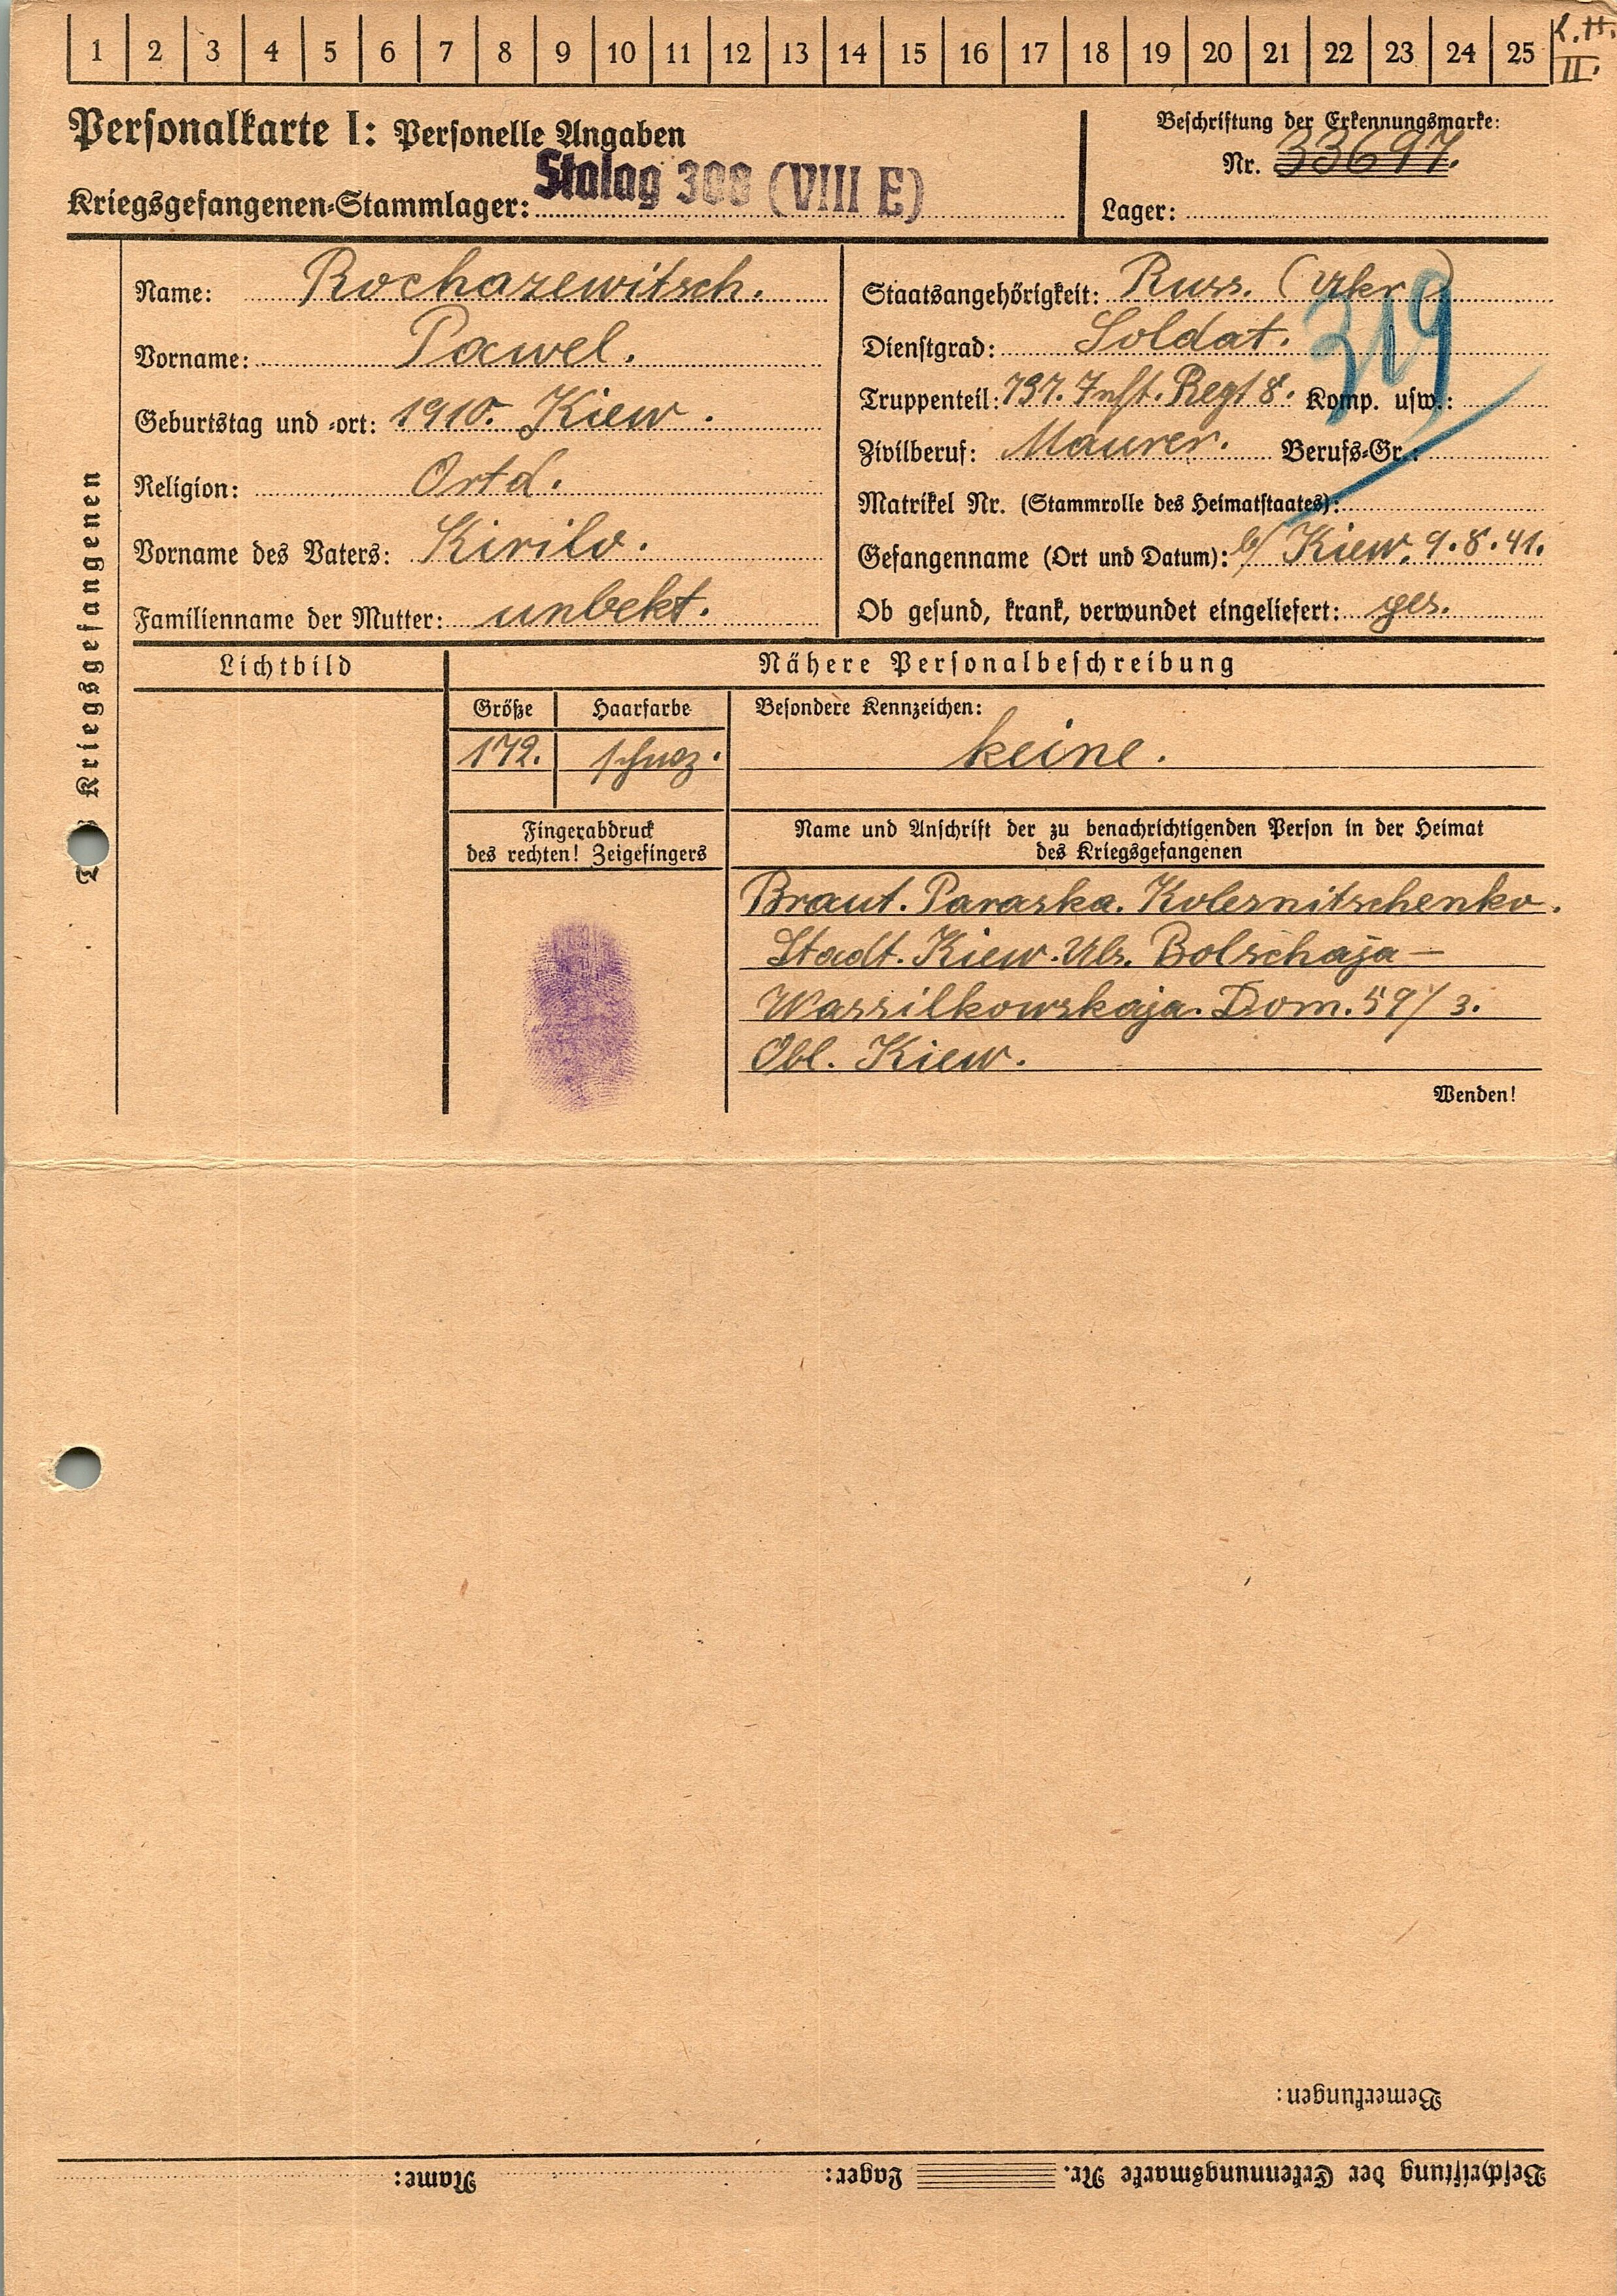 1 2 3 4 5 6 7 8 9 10 11 12 13 14 15 16 17 18 19 20 21 22 23 24 25
II.
Personalkarte I: Personelle Angaben
Beschriftung der Erkennungsmarke:
Nr. 33697.
Kriegsgefangenen-Stammlager: Stalag 308 (VIII E)
Lager:
Kriegsgefangenen
Name: Rochazewitsch.
Vorname: Pawel.
Geburtstag und -ort: 1910. Kiew.
Religion: Ortd.
Vorname des Vaters: Kirilo.
Familienname der Mutter: unbekt.
Staatsangehörigkeit: Russ. (Ukr)
319
Dienstgrad: Soldat.
Truppenteil: 737. Inft. Regt 8. Komp. usw.:
Zivilberuf: Maurer. Berufs-Gr.:
Matrikel Nr. (Stammrolle des Heimatstaates):
Gefangenname (Ort und Datum): b/ Kiew. 9.8.41.
Ob gesund, krank, verwundet eingeliefert: ges.
Lichtbild
Nähere Personalbeschreibung
Größe
Haarfarbe
Besondere Kennzeichen:
172.
schwz.
keine.
Fingerabdruck
des rechten! Zeigefingers
Name und Anschrift der zu benachrichtigenden Person in der Heimat
des Kriegsgefangenen
Braut. Paraska. Kolesnitschenko.
Stadt. Kiew. Uls. Bolschaja-
Wassilkowskaja. Dom. 59/3.
Obl. Kiew.
Wenden!
Bemerkungen:
Beschriftung der Erkennungsmarke Nr. Lager: Name: